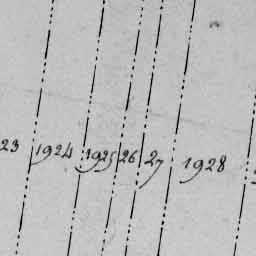 23 1924 1925 26 27 1928